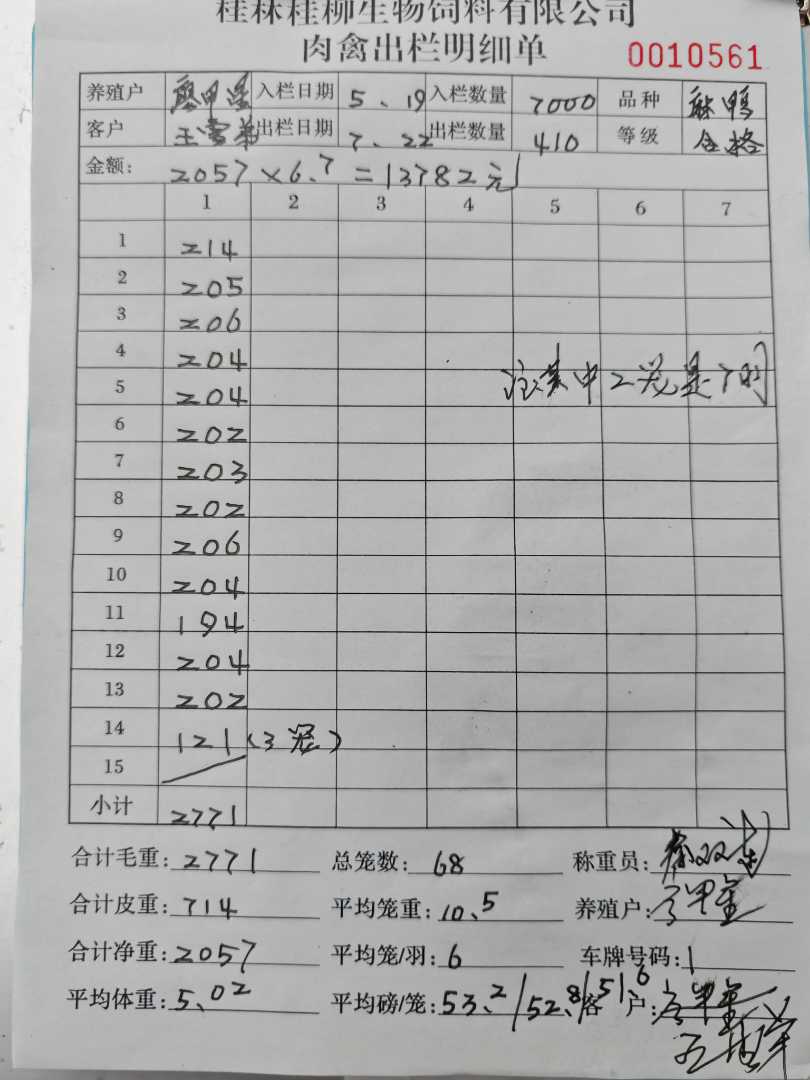 桂林桂柳生物饲料有限公司
肉禽出栏明细单 0010561
养殖户 入栏日期 5、19 入栏数量 7000 品种 麻鸭
客户 出栏日期 7、22 出栏数量 410 等级 合格
金额: 2057×6.7=13782元
1 2 3 4 5 6 7
1 214
2 205
3 206
4 204 注其中2笼是7的
5 204
6 202
7 203
8 202
9 206
10 204
11 194
12 204
13 202
14 121(3笼)
15
小计 2771
合计毛重: 2771 总笼数: 68 称重员:
合计皮重: 714 平均笼重: 10.5 养殖户:
合计净重: 2057 平均笼/羽: 6 车牌号码: 1
平均体重: 5.02 平均磅/笼: 53.2/52.8/51.6 客户: